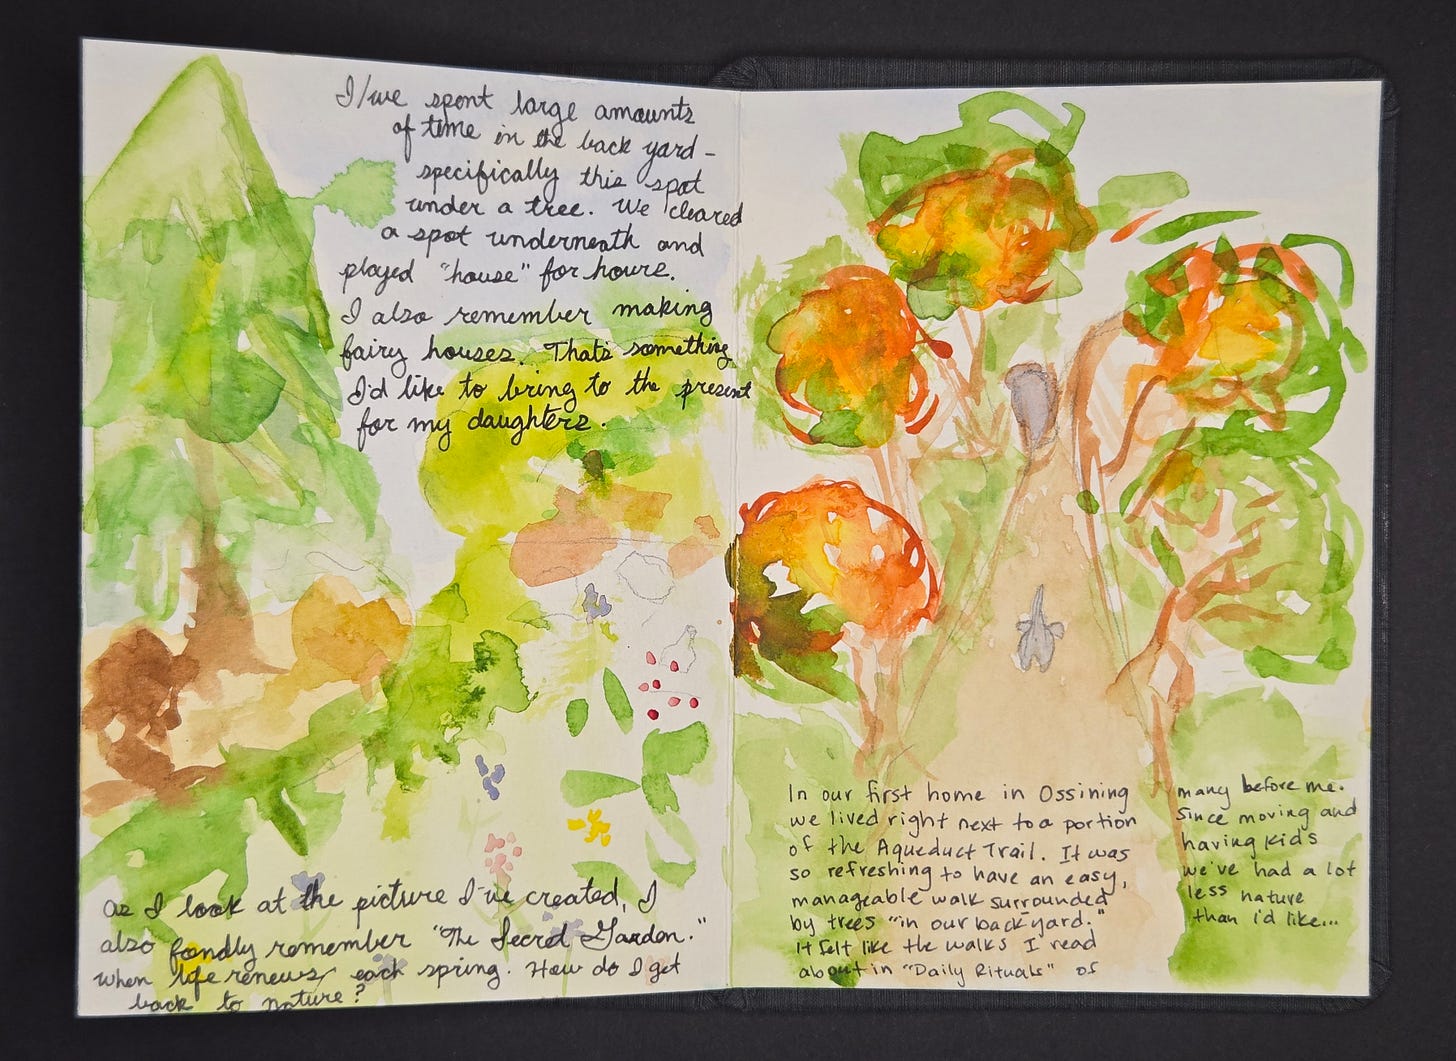 I/we spent large amounts
of time in the back yard -
specifically this spot
under a tree. We cleared
a spot underneath and
played "house" for hours.
I also remember making
fairy houses. That's something
I'd like to bring to the present
for my daughters.
as I look at the picture I've created, I
also fondly remember "The Secret Garden."
when life renews each spring. How do I get
back to nature?
In our first home in Ossining
we lived right next to a portion
of the Aqueduct Trail. It was
so refreshing to have an easy,
manageable walk surrounded
by trees "in our backyard."
It felt like the walks I read
about in "Daily Rituals" of
many before me.
Since moving and
having kids
we've had a lot
less nature
than i'd like...